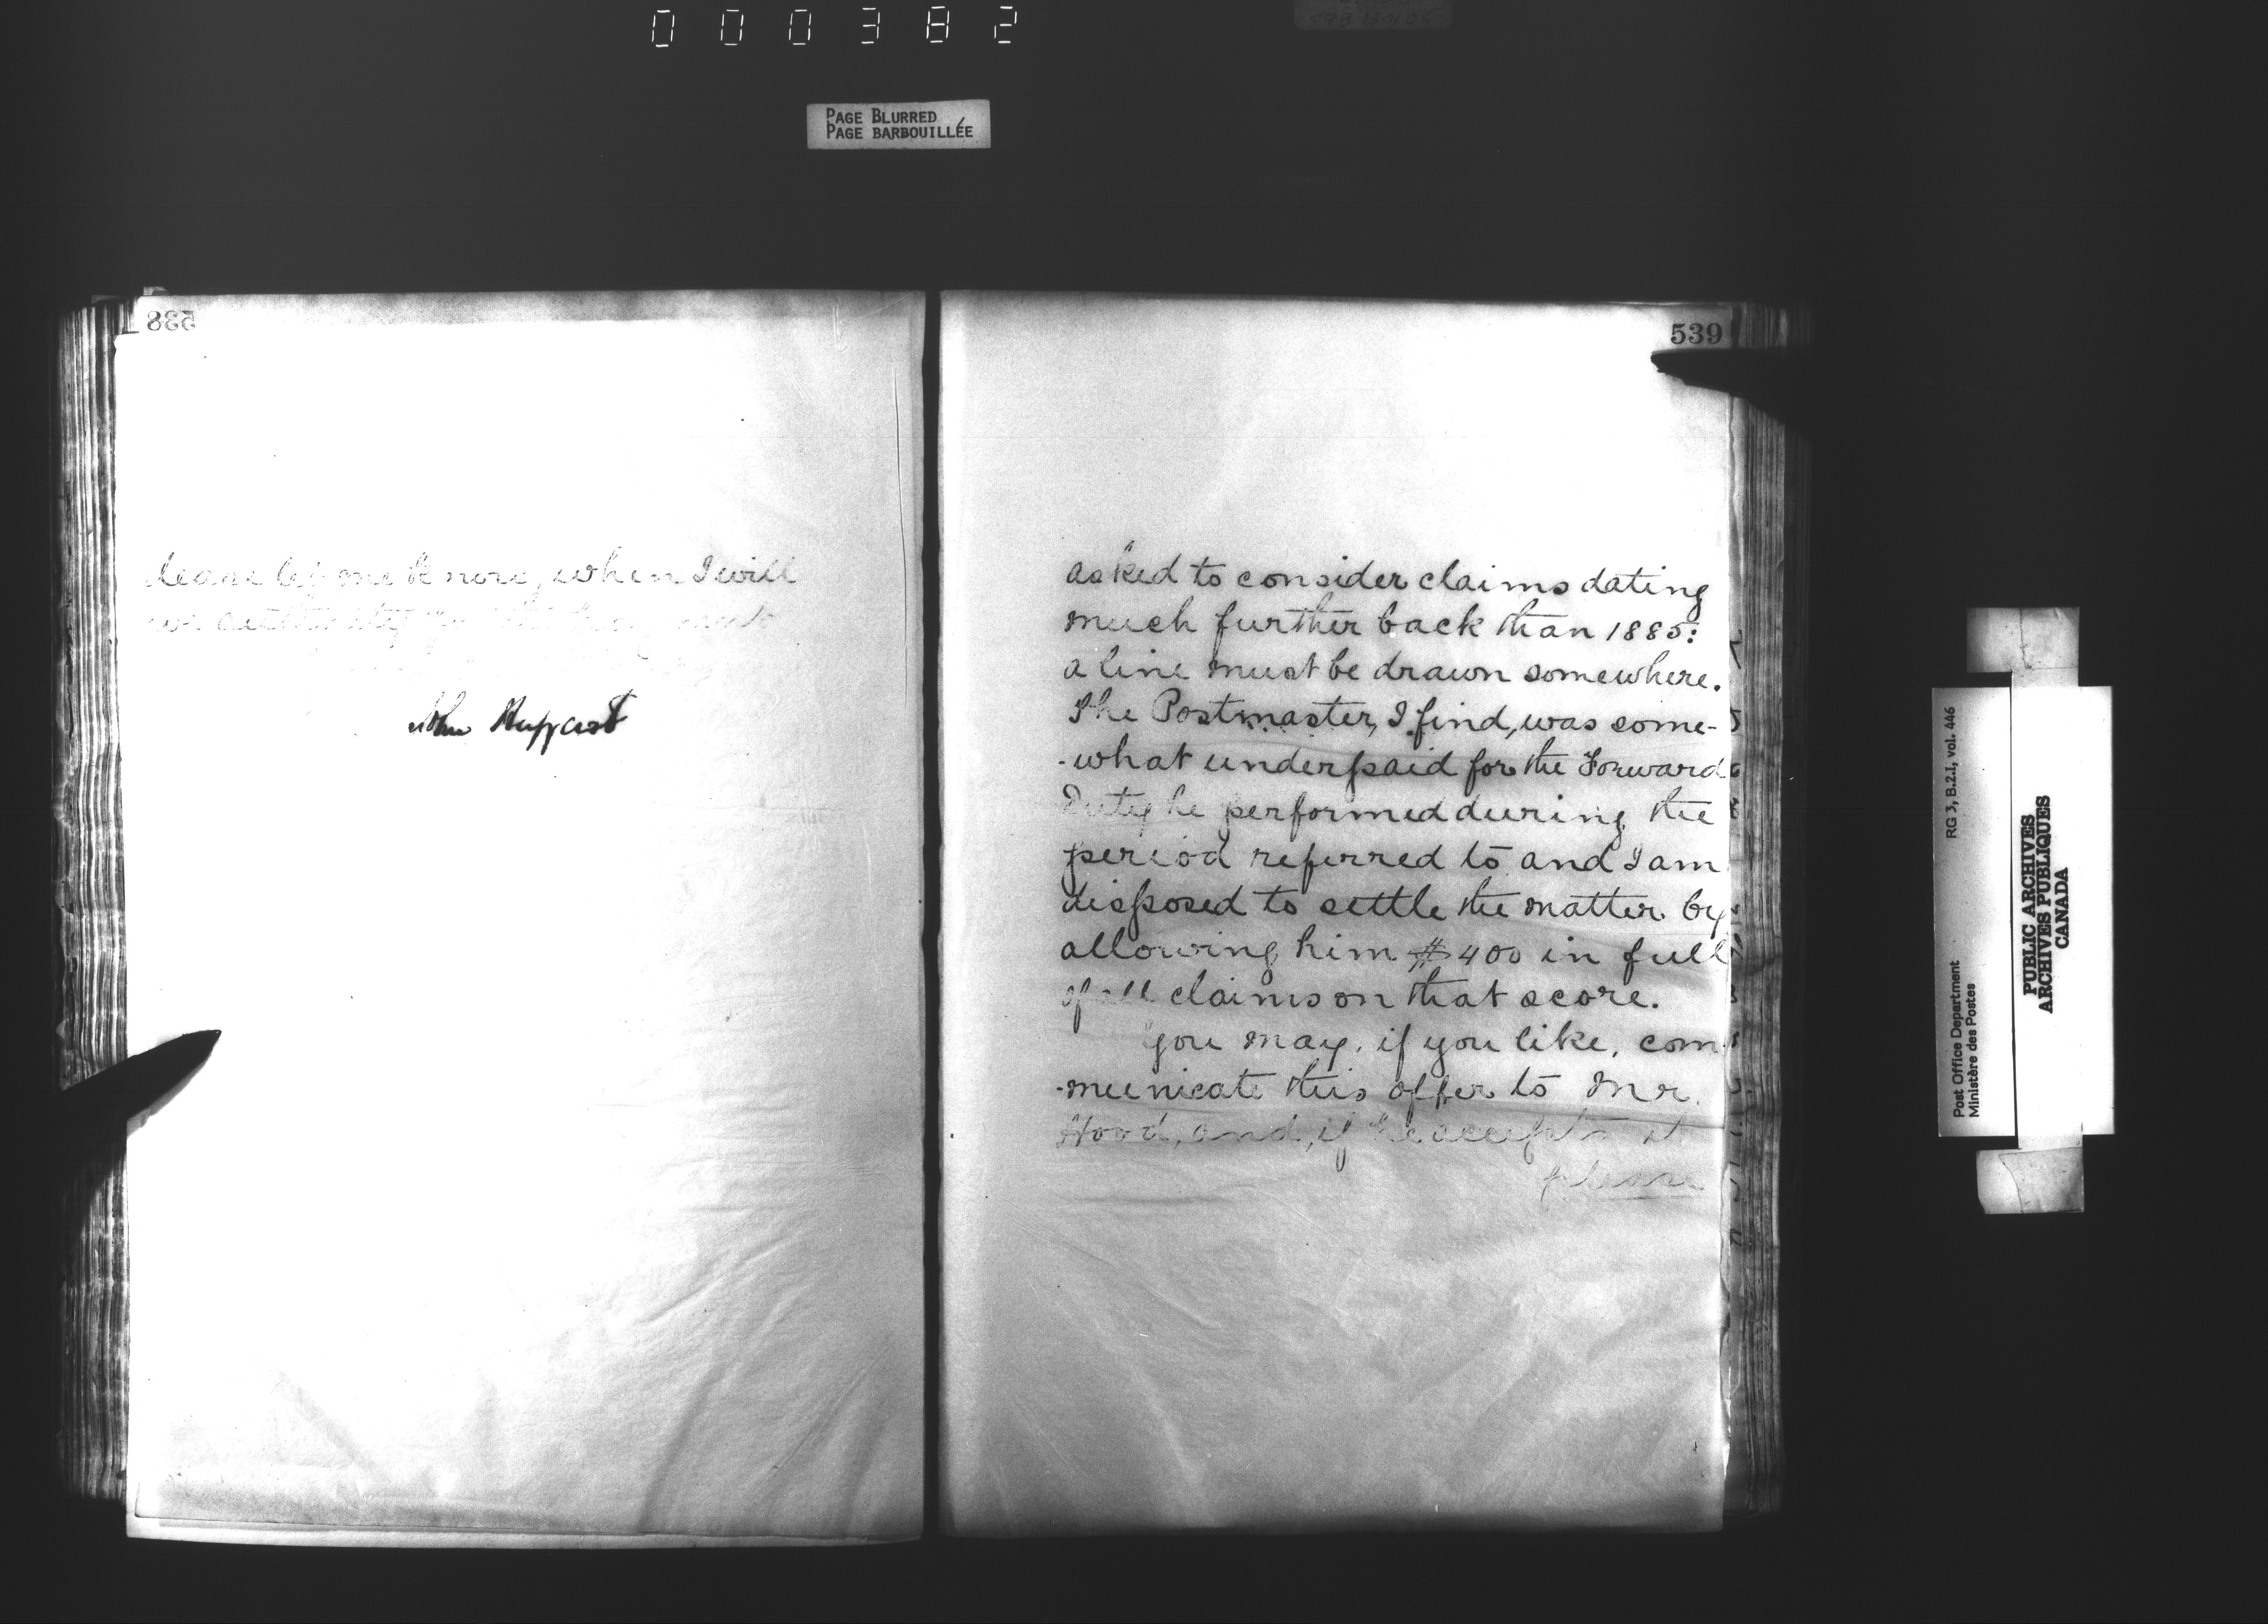 000382
PAGE BLURRED
PAGE BARBOUILLÉE
538
let me know, when I will
John
539
asked to consider claims dating
much further back than 1885:
a line must be drawn somewhere.
The Postmaster, I find, was some-
-what underpaid for the Forward
Duty he performed during the
period referred to and I am
disposed to settle the matter by
allowing him $400 in full
of all claims on that score.
You may, if you like, com-
-municate this offer to Mr.
Hood, and, if he accepts it
please
RG 3, B.2.I, vol. 446
Post Office Department
Ministère des Postes
PUBLIC ARCHIVES
ARCHIVES PUBLIQUES
CANADA